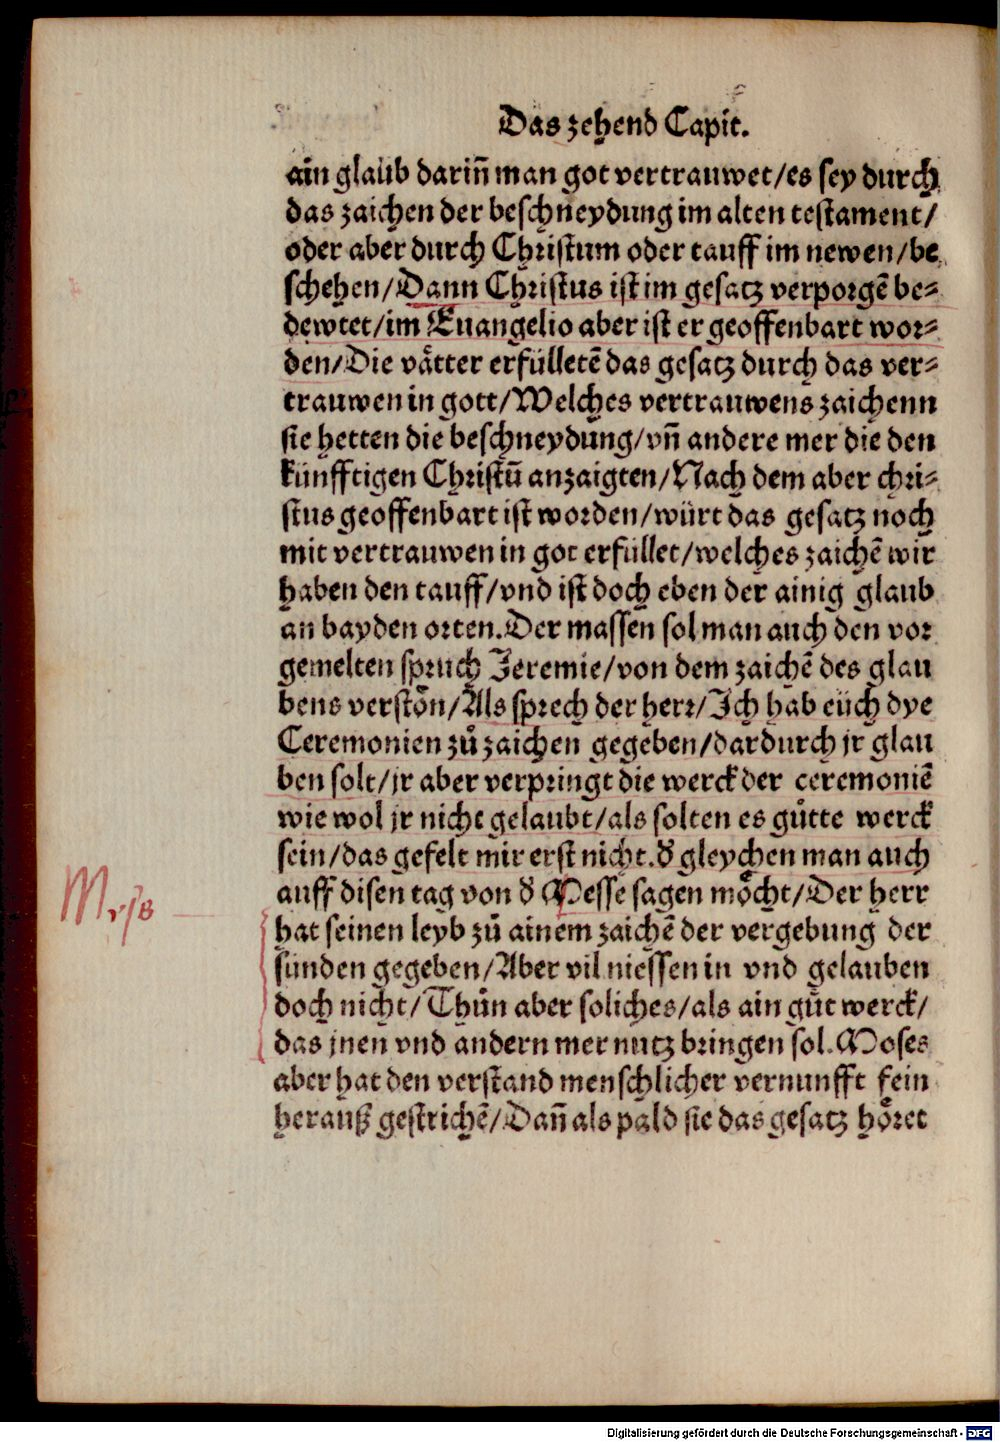 Das zehend Capit.
ain glaub dariñ man got vertrauwet/es sey durch
das zaichen der beschneydung im alten testament/
oder aber durch Christum oder tauff im newen/be
schehen/Dann Christus ist im gesatz verporgē be-
dewtet/im Euangelio aber ist er geoffenbart wor-
den/Die vaͤtter erfülletē das gesatz durch das ver-
trauwen in gott/Welches vertrauwens zaichenn
sie hetten die beschneydung/vñ andere mer die den
künfftigen Christū anzaigten/Nach dem aber chri-
stus geoffenbart ist worden/würt das gesatz noch
mit vertrauwen in got erfüllet/welches zaichē wir
haben den tauff/vnd ist doch eben der ainig glaub
an bayden orten.Der massen sol man auch den vor
gemelten spruch Jeremie/von dem zaichē des glau
bens verstōn/Als sprech der herr/Ich hab eüch dye
Ceremonien zů zaichen gegeben/dardurch jr glau
ben solt/jr aber verpringt die werck der ceremoniē
wie wol jr nicht gelaubt/als solten es gůtte werck
sein/das gefelt mir erst nicht.đ gleychen man auch
auff disen tag von đ Messe sagen moͤcht/Der herr
hat seinen leyb zů ainem zaichē der vergebung der
sünden gegeben/Aber vil niessen in vnd gelauben
doch nicht/Thůn aber soliches/als ain gůt werck/
das jnen vnd andern mer nutz bringen sol.Moses
aber hat den verstand menschlicher vernunfft fein
herauß gestrichē/Dañ als pald sie das gesatz hoͤret
Digitalisierung gefördert durch die Deutsche Forschungsgemeinschaft - DFG